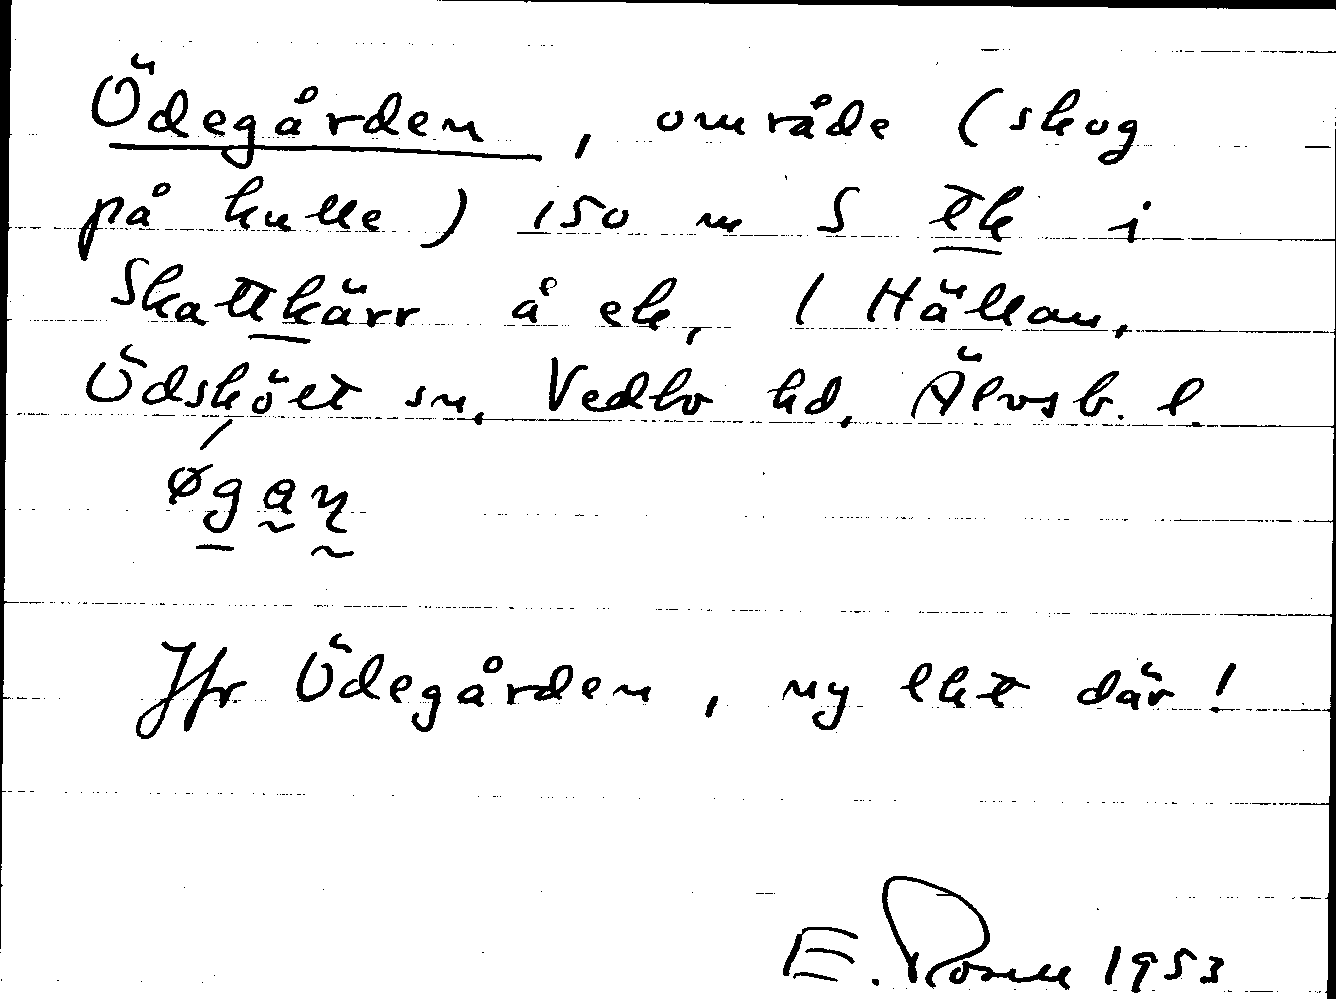 Ödegården, område (skog
på kulle) 150 m S tk i
Skattkärr å ek, 1 Hällan,
Ödskölt sn, Vedbo hd, Älvsb. l.
øgan
Jfr Ödegården, ny lht där!
E. Rosell 1953